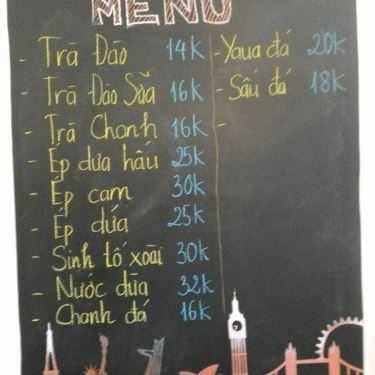 MENU
- Trà Đào 14k
- Trà Đào Sữa 16k
- Trà Chanh 16k
- Ép dưa hấu 25k
- Ép cam 30k
- Ép dứa 25k
- Sinh tố xoài 30k
- Nước dừa 32k
- Chanh đá 16k
- Yaua đá 20k
- Sấu đá 18k
-